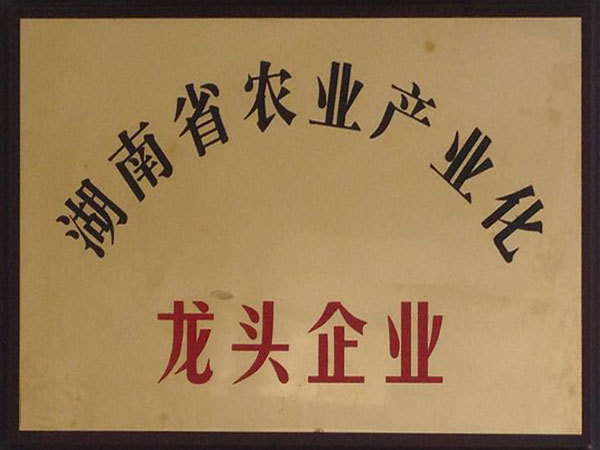 湖南省农业产业化
龙头企业